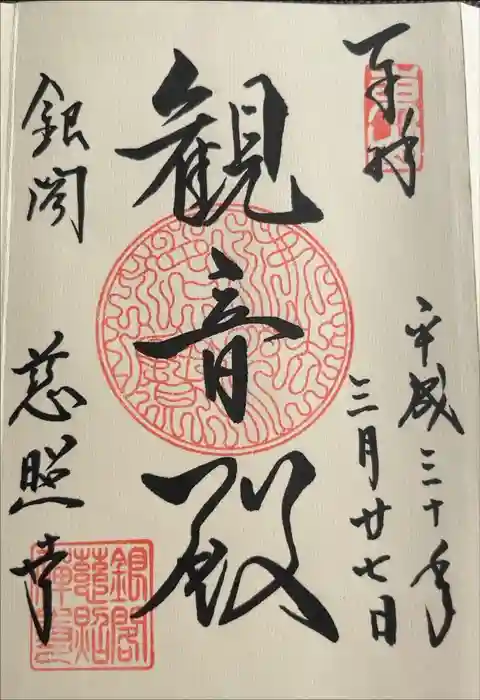 奉拝
平成三十年
三月廿七日
観音殿
銀閣 慈照寺
銀閣
慈照
禅寺